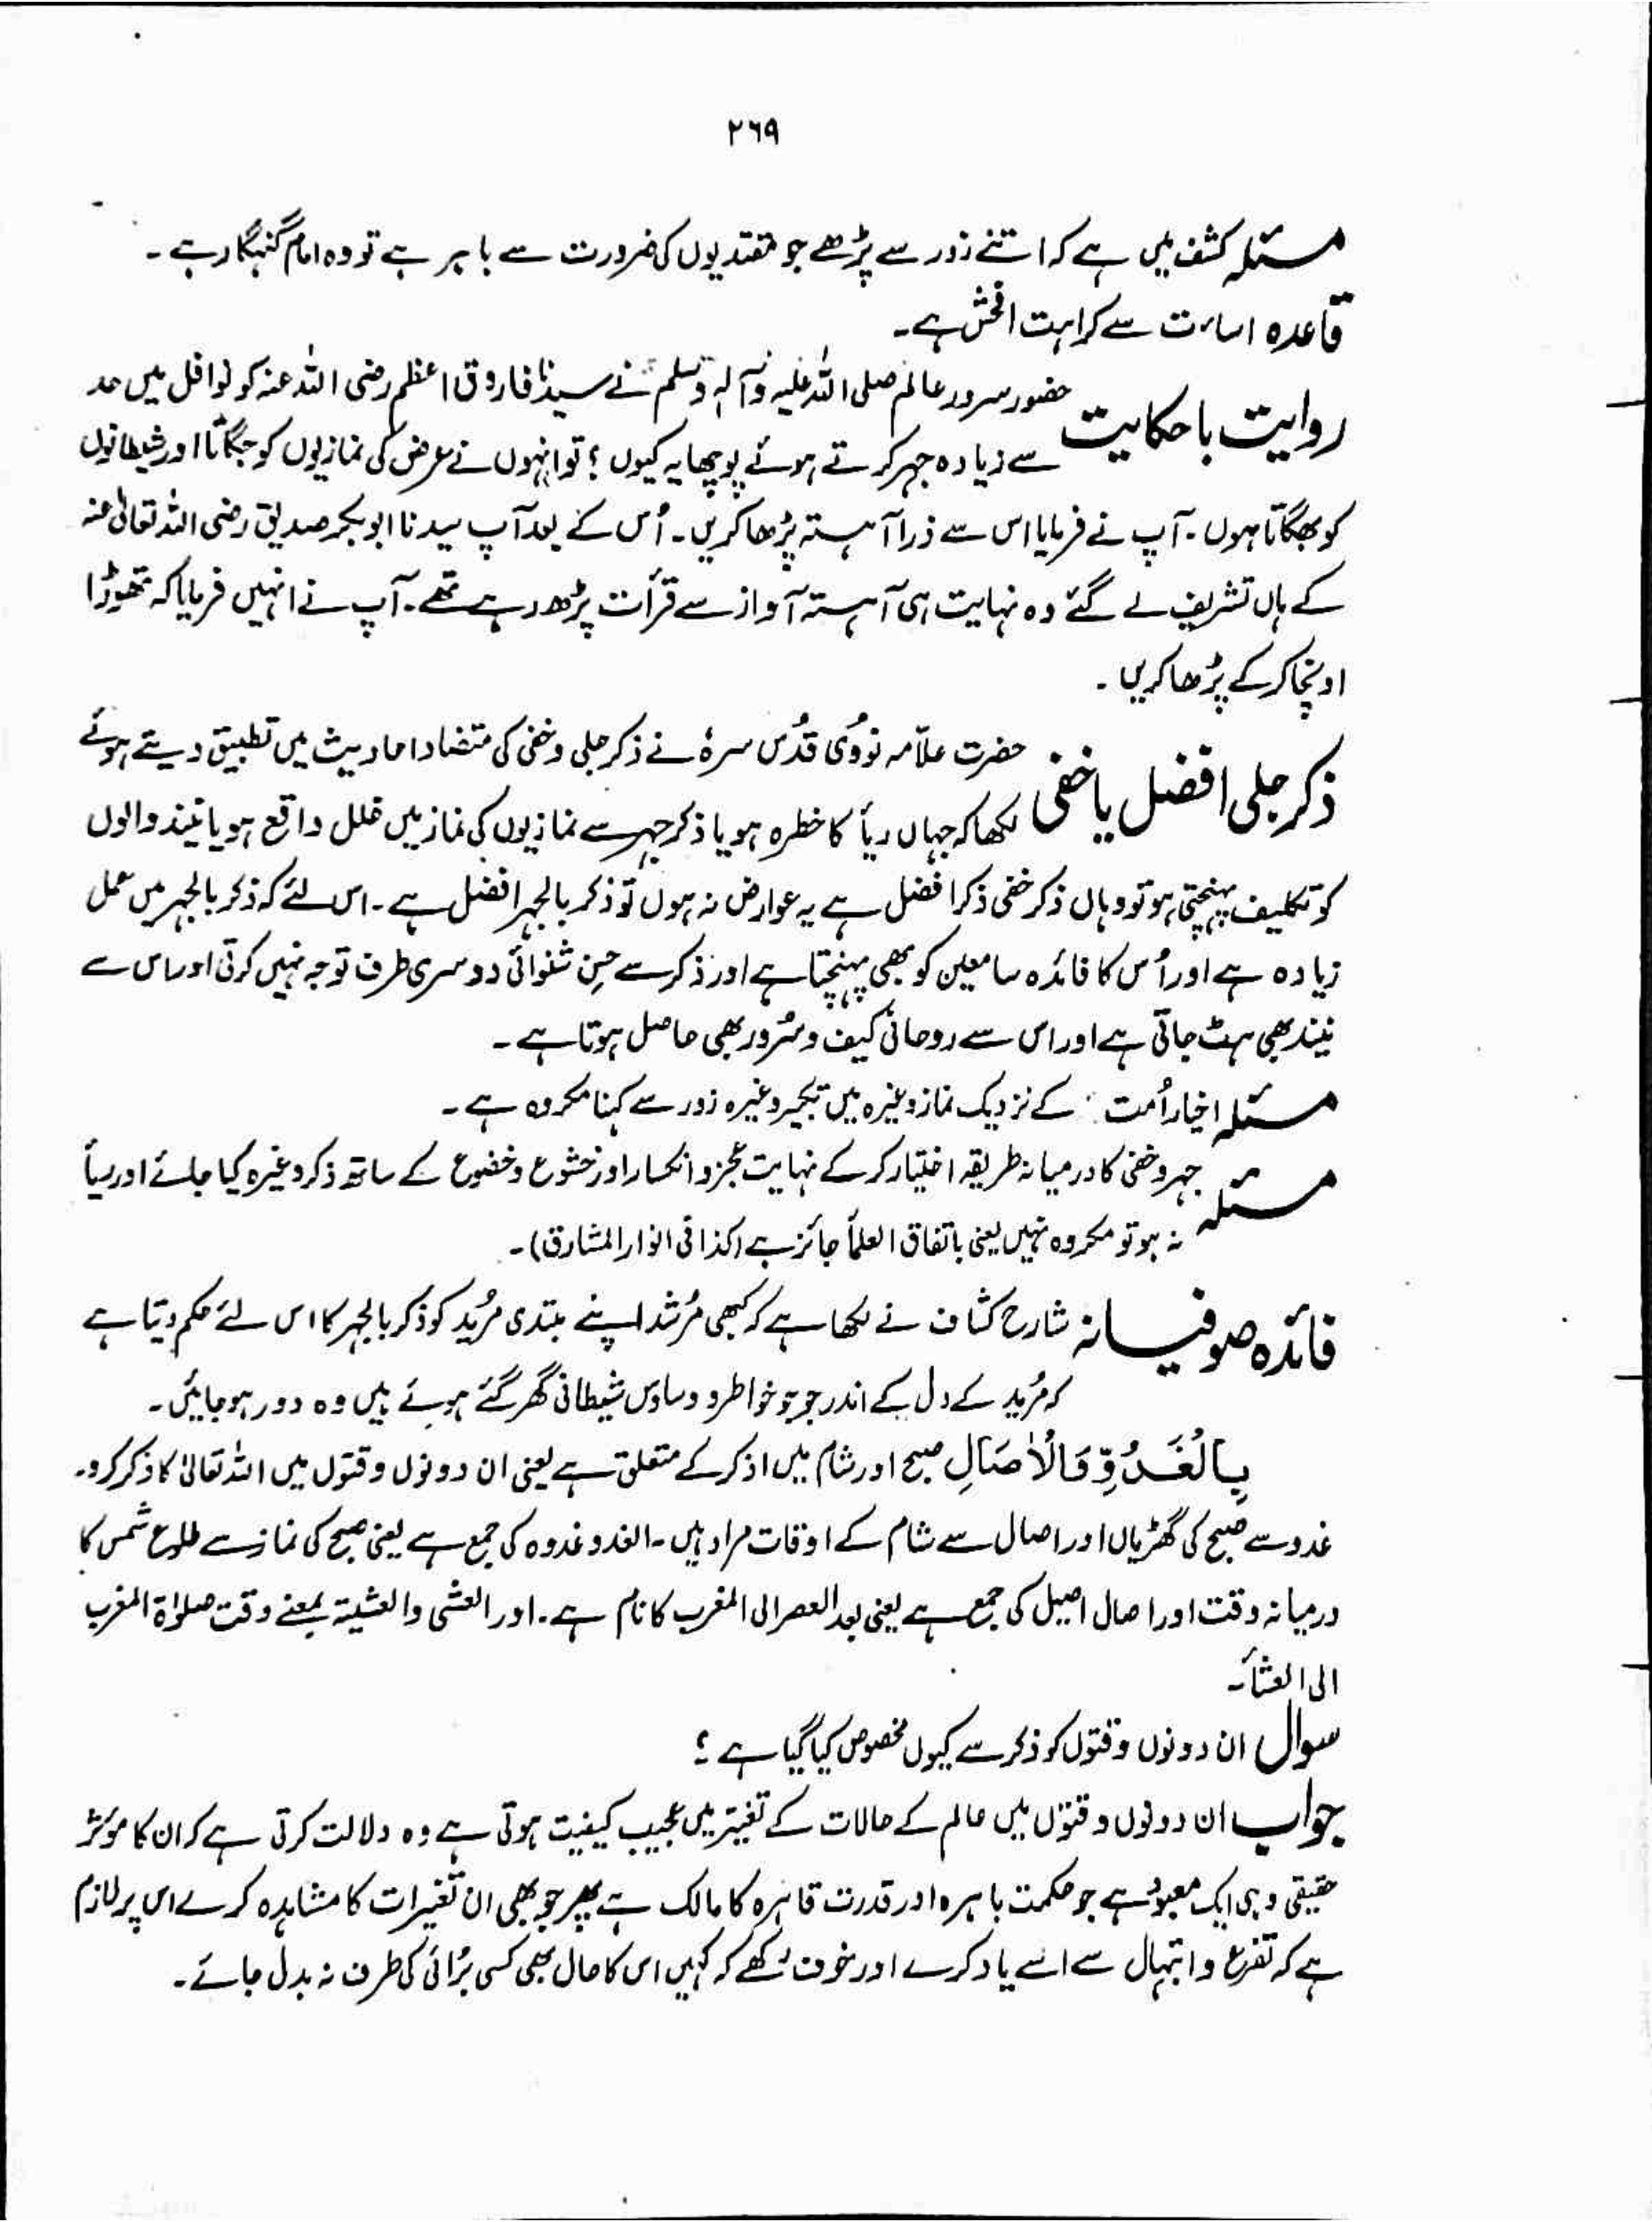 ۲۶۹
مسئلہ کشف میں ہے کہ اتنے زور سے پڑھے جو مقتدیوں کی ضرورت سے باہر ہے تو وہ امام گنہگار ہے ۔
قاعدہ اساءت سے کراہت افحش ہے۔
روایت با حکایت حضور سرور عالم صلی اللہ علیہ وآلہ وسلم نے سیدنا فاروق اعظم رضی اللہ عنہ کو نوافل میں حد
سے زیادہ جہر کرتے ہوئے پوچھا یہ کیوں ؟ تو انہوں نے عرض کی نمازیوں کو جگاتا اور شیطانوں
کو بھگاتا ہوں ۔ آپ نے فرمایا اس سے ذرا آہستہ پڑھا کریں ۔ اُس کے بعد آپ سیدنا ابوبکر صدیق رضی اللہ تعالیٰ عنہ
کے ہاں تشریف لے گئے وہ نہایت ہی آہستہ آواز سے قرأت پڑھ رہے تھے ۔ آپ نے انہیں فرمایا کہ تھوڑا
اونچا کر کے پڑھا کریں ۔
ذکر جلی افضل یا خفی حضرت علاّمہ نووی قدس سرہٗ نے ذکر جلی و خفی کی متضاد احادیث میں تطبیق دیتے ہوئے
لکھا کہ جہاں ریأ کا خطرہ ہو یا ذکر جہر سے نمازیوں کی نماز میں خلل واقع ہو یا نیند والوں
کو تکلیف پہنچتی ہو تو وہاں ذکر خفی ذکر افضل ہے یہ عوارض نہ ہوں تو ذکر بالجہر افضل ہے ۔ اس لئے کہ ذکر بالجہر میں عمل
زیادہ ہے اور اُس کا فائدہ سامعین کو بھی پہنچتا ہے اور ذکر سے حِس شنوائی دوسری طرف توجہ نہیں کرتی اور اس سے
نیند بھی ہٹ جاتی ہے اور اس سے روحانی کیف و سُرور بھی حاصل ہوتا ہے ۔
مسئلہ اخیار اُمت کے نزدیک نماز وغیرہ میں تکبیر وغیرہ زور سے کہنا مکروہ ہے ۔
مسئلہ جہر و خفی کا درمیانہ طریقہ اختیار کر کے نہایت عجز و انکسار اور خشوع و خضوع کے ساتھ ذکر وغیرہ کیا جائے اور ریأ
نہ ہو تو مکروہ نہیں یعنی باتفاق العلمأ جائز ہے (کذا فی انوار المشارق) ۔
فائدہ صوفیانہ شارح کشاف نے لکھا ہے کہ کبھی مُرشد اپنے مبتدی مُرید کو ذکر بالجہر کا اس لئے حکم دیتا ہے
کہ مُرید کے دل کے اندر جو جو خواطر و وساوس شیطانی گھر گئے ہوئے ہیں وہ دور ہو جائیں ۔
بِالْغُدُوِّ وَالْاٰصَالِ صبح اور شام میں اذکر کے متعلق ہے یعنی ان دونوں وقتوں میں اللہ تعالیٰ کا ذکر کرو۔
غدو سے صبح کی گھڑیاں اور اصال سے شام کے اوقات مراد ہیں ۔ الغدو غدوہ کی جمع ہے یعنی صبح کی نماز سے طلوع شمس کا
درمیانہ وقت اور اصال اصیل کی جمع ہے یعنی بعد العصر الی المغرب کا نام ہے ۔ اور العشی والعشیۃ بمعنے وقت صلوٰۃ المغرب
الی العشأ۔
سوال ان دونوں وقتوں کو ذکر سے کیوں مخصوص کیا گیا ہے ؟
جواب ان دونوں وقتوں میں عالم کے حالات کے تغیر میں عجیب کیفیت ہوتی ہے وہ دلالت کرتی ہے کہ ان کا موثر
حقیقی وہی ایک معبود ہے جو حکمت باہرہ اور قدرت قاہرہ کا مالک ہے پھر جو بھی ان تغیرات کا مشاہدہ کرے اس پر لازم
ہے کہ تضرع و ابتہال سے اسے یاد کرے اور خوف رکھے کہ کہیں اس کا حال بھی کسی بُرائی کی طرف نہ بدل جائے ۔